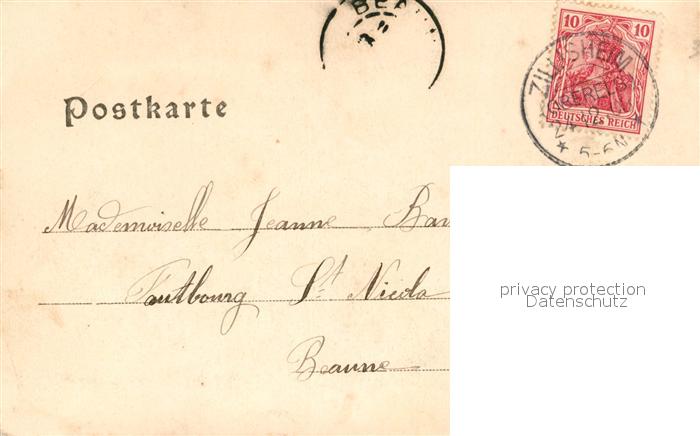 10 10
DEUTSCHES REICH
ZILLISHEIM
5-6N
Postkarte
Mademoiselle Jeanne
Fautbourg St Nicola
Beaune
privacy protection
Datenschutz